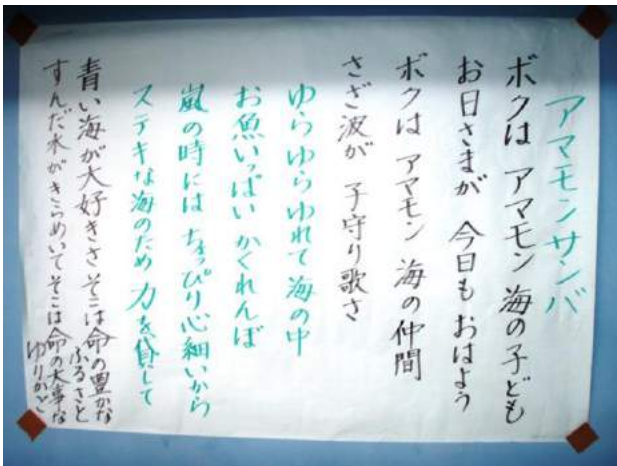 アマモンサンバ
ボクは アマモン 海の子ども
お日さまが 今日も おはよう
ボクは アマモン 海の仲間
さざ波が 子守り歌さ
ゆらゆらゆれて 海の中
お魚いっぱい かくれんぼ
嵐の時には ちょっぴり心細いから
ステキな海のため 力を貸して
青い海が大好きさ そこは命の豊かな
ふるさと
すんだ水がきらめいて そこは命の大事な
ゆりかご